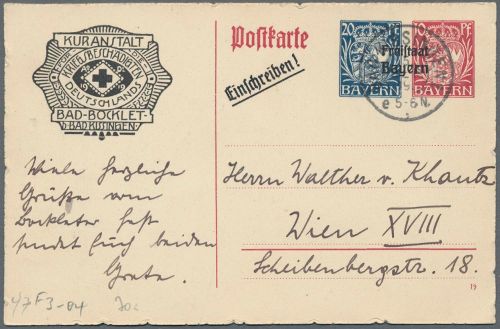 KURANSTALT
KRIEGSBESCHÄDIGTER
DEUTSCHLANDS
BAD-BOCKLET
B. BAD KISSINGEN
Postkarte
Einschreiben!
20
BAYERN
10 Pf
Freistaat
Bayern
BAYERN
e 5-6 N.
Viele herzliche
Grüße vom
Bockleter Fest
sendet Euch beiden
Grete.
Herrn Walther v. Khautz
Wien XVIII
Scheibenbergstr. 18.
19
47F3-04